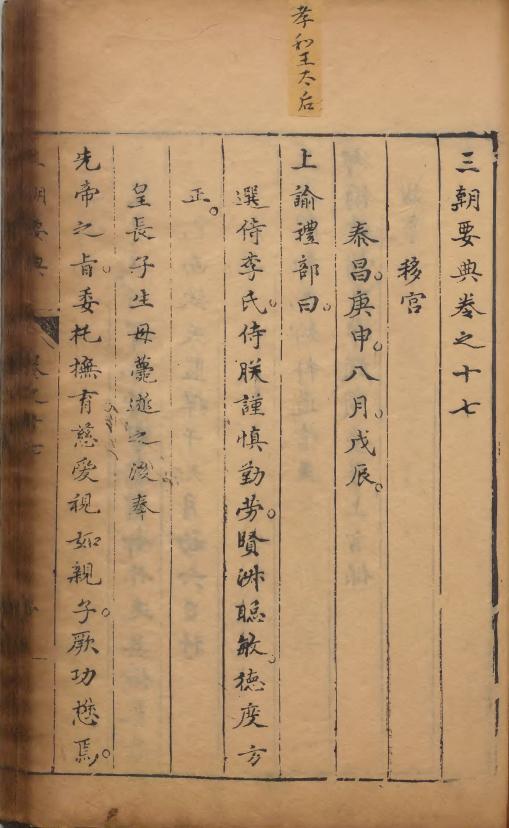 孝和王太后
三朝要典卷之十七
移宮
泰昌。庚申。八月。戊辰。
上諭禮部曰。
選侍李氏。侍朕謹慎勤勞。賢淑聰敏。德度方
正。
皇長子生母薨逝之後奉
先帝之旨。委托撫育慈愛視如親子。厥功懋焉。